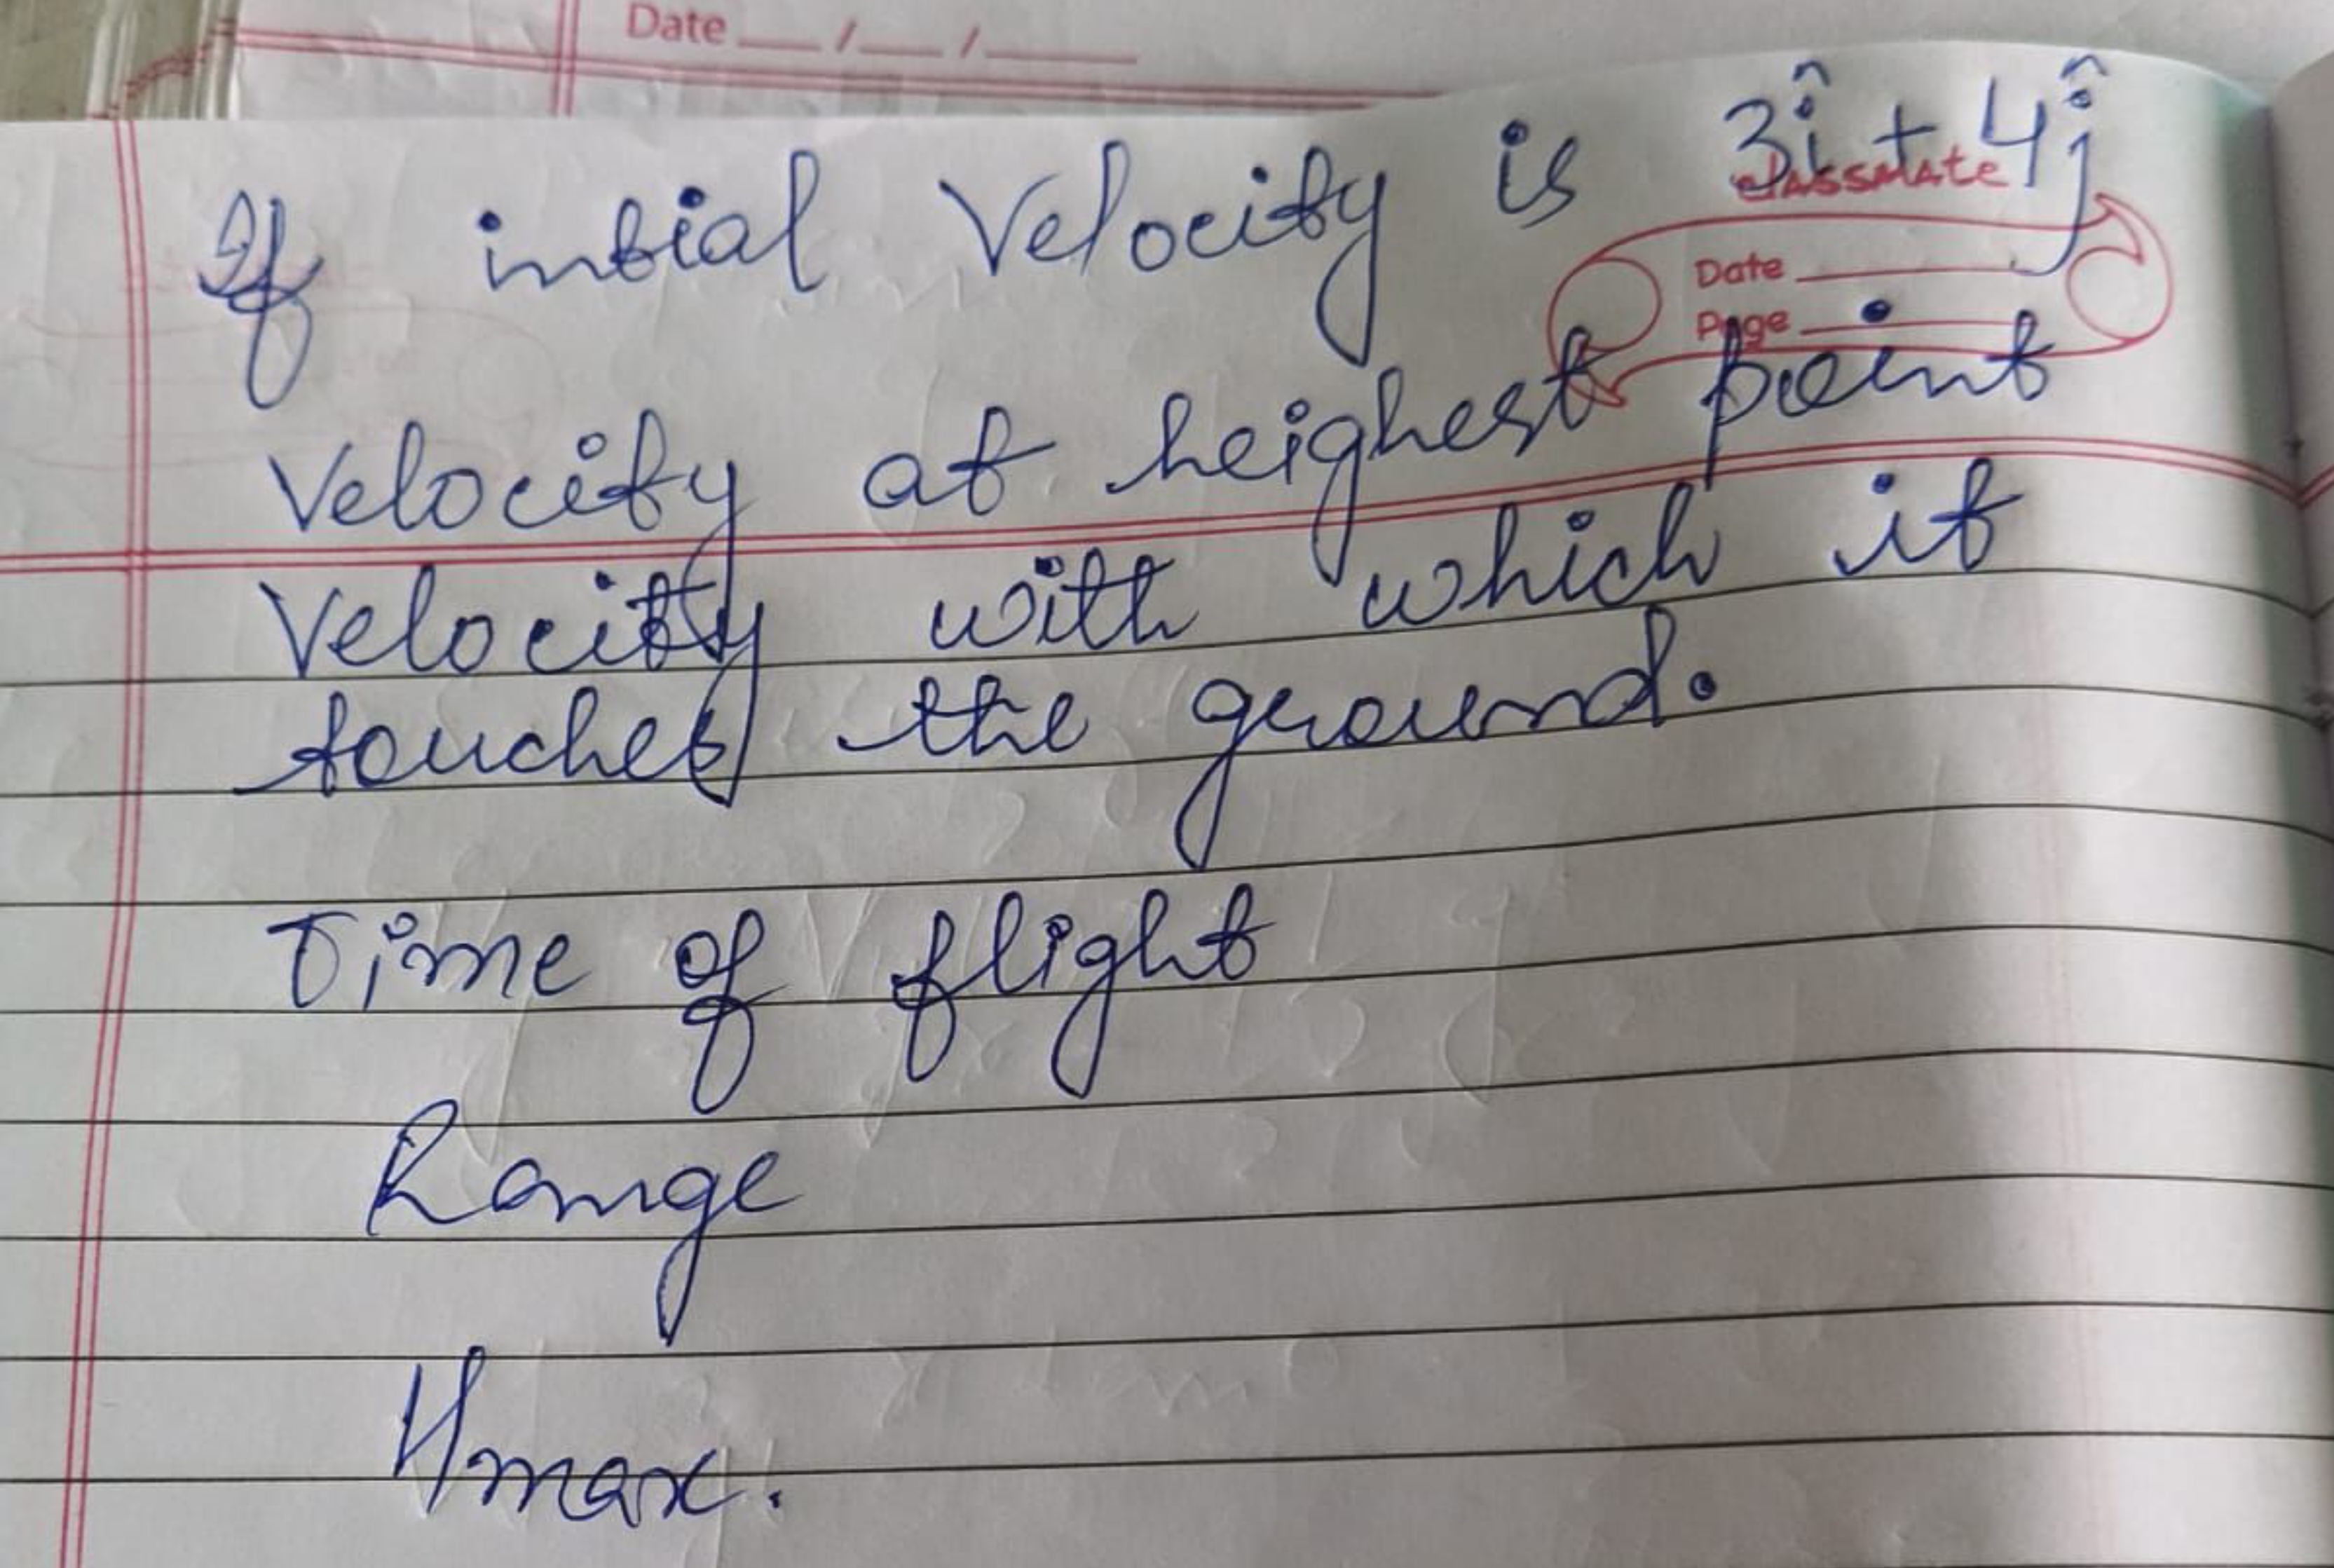 Date __/__/____
If intial Velocity is 3î + 4ĵ
classmate
Date
Page
Velocity at heighest point
Velocity with which it
touches the ground.
Time of flight
Range
Hmax.